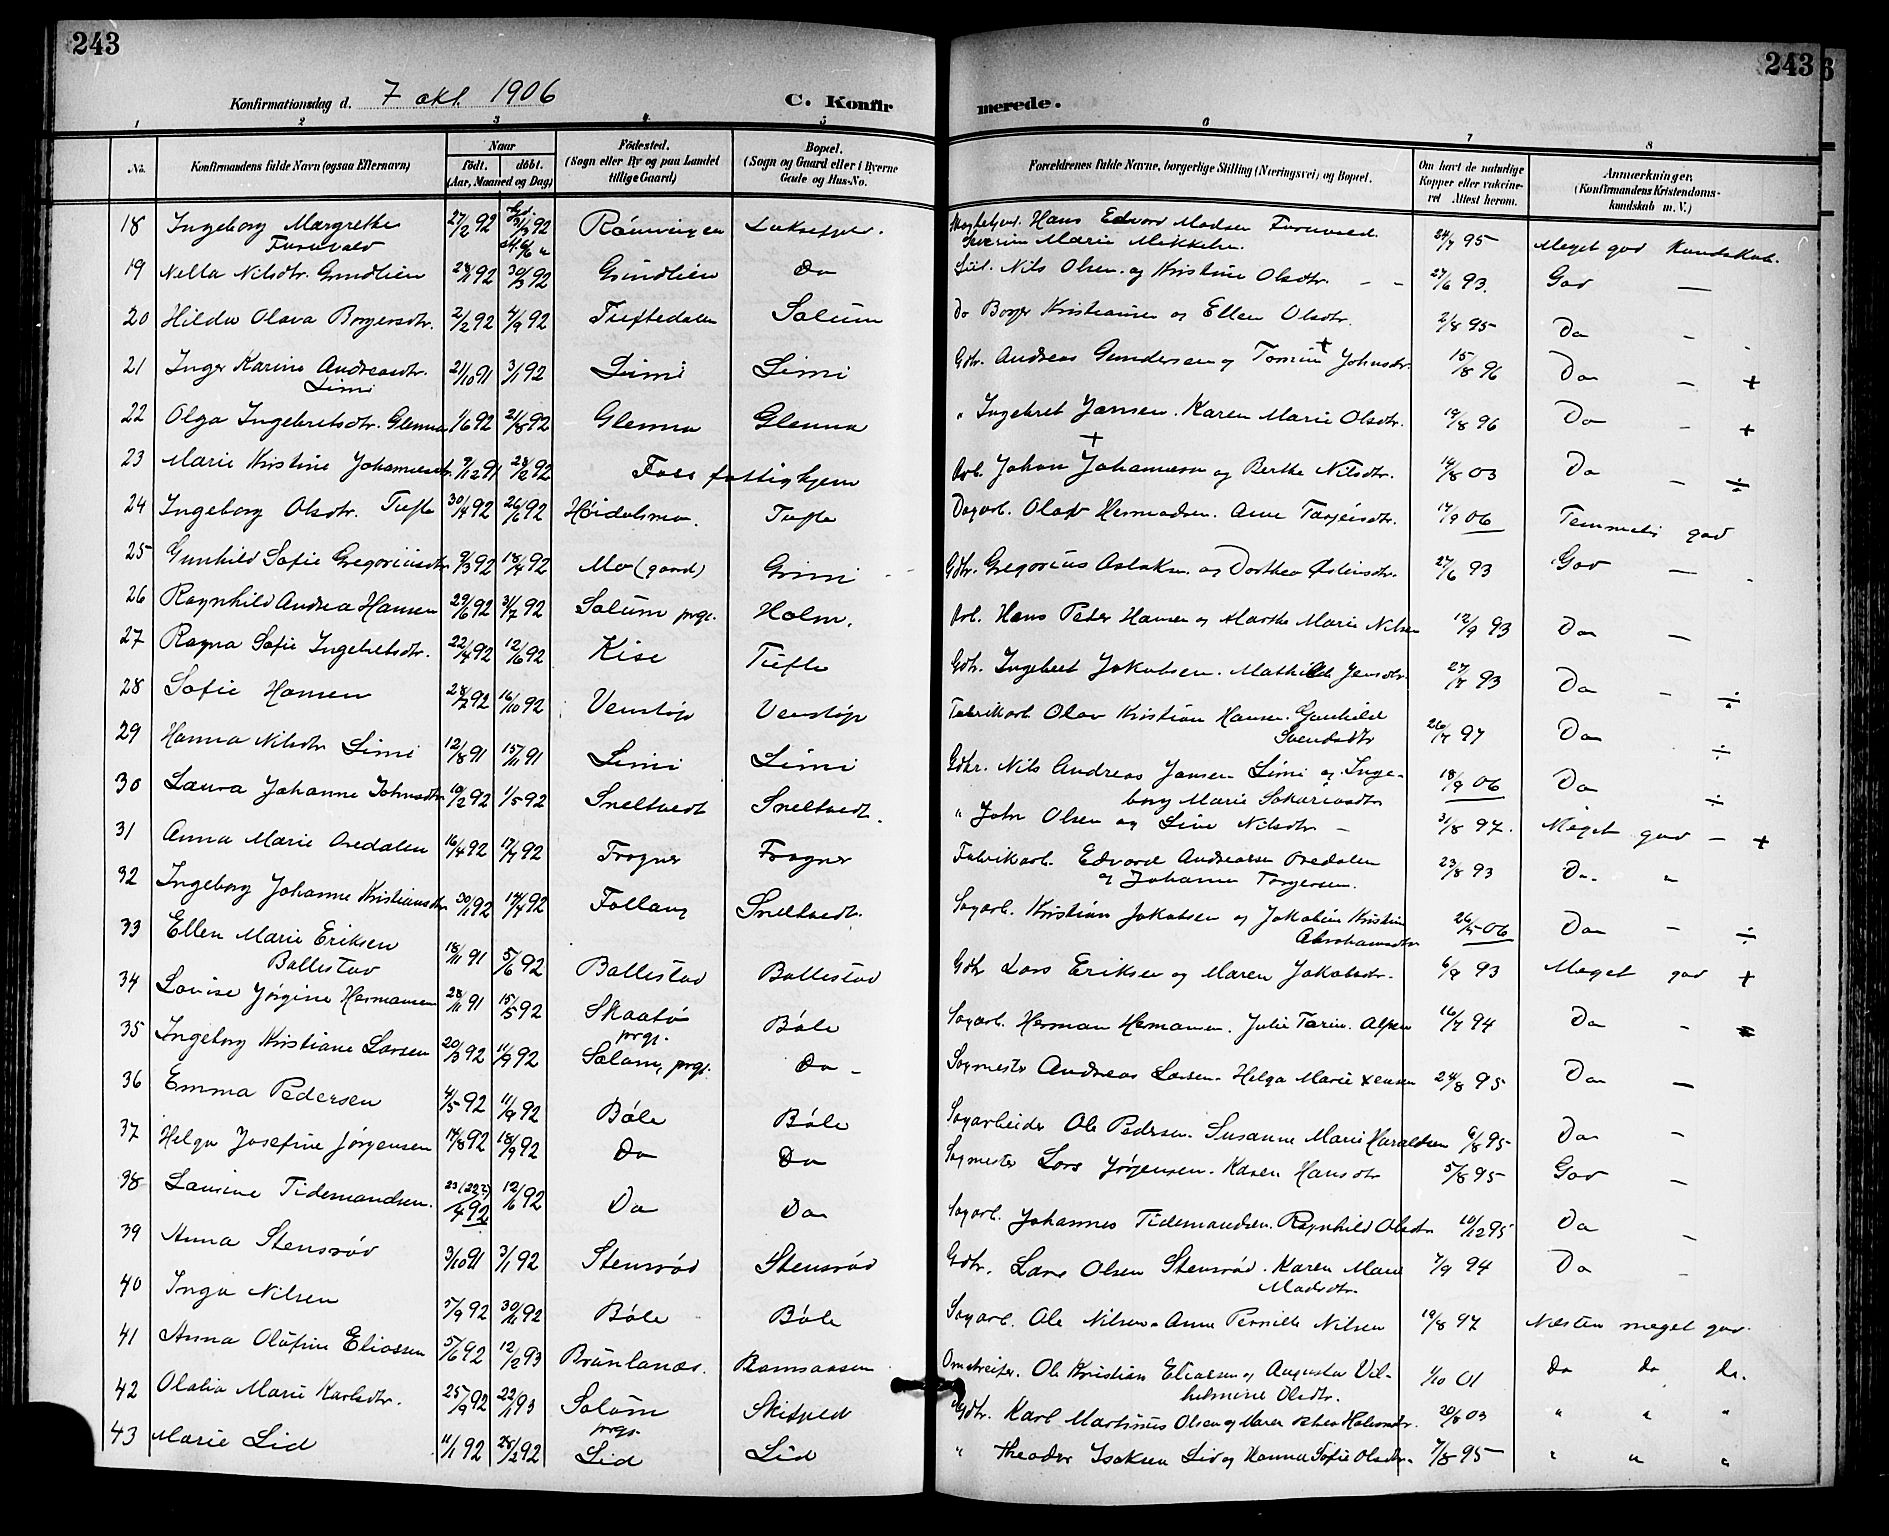 243
243
Konfirmationsdag d. 7 okt. 1906
C. Konfir
merede.
1 2 3 4 5 6 7 8
No.
Konfirmandens fulde Navn (ogsaa Efternavn)
Naar
født. døbt.
(Aar, Maaned og Dag)
Fødested.
(Sogn eller By og paa Landet
tillige Gaard)
Bopæl.
(Sogn og Gaard eller i Byerne
Gade og Hus-No.
Forældrenes fulde Navne, borgerlige Stilling (Næringsvei) og Bopæl.
Om havt de naturlige
Kopper eller vakcine-
ret Attest herom.
Anmærkninger.
(Konfirmandens Kristendoms-
kundskab m. V.)
18 Ingeborg Margrethe 27/2 92 Hans Edvard Madsen
Severin Marie 24/7 95 Meget god Kundskab.
19 Nella Nilsdtr. Grindlien 92 30/3 92 Grindlien Do Nils Olsen og Kristine Olsdtr. 27/6 93. God —
20 Hilda Olava Borgersdtr. 2/2 92 4/9 92 Tuftedalen Solum Do Borger Kristiansen og Ellen Olsdtr. 2/8 95 Do -
21 Inger Karine Andreasdtr. 21/10 91 3/1 92 Limi Limi Gdbr. Andreas Gundersen og + Johnsdtr. 15/8 96 Do - +
Limi
22 Olga Ingebretsdtr. Glenna 1/6 92 21/8 92 Glenna Glenna " Ingebret Jansen. Karen Marie Olsdtr. 19/8 96 Do - +
23 Marie Kristine 9/12 91 28/2 92 Foss fattighjem Arb. Johan Johannesen og Berthe Nilsdtr. 14/8 03 Do - ÷
24 Ingeborg Olsdtr. Tufte 30/4 92 26/6 92 Høidalsmo. Tufte Dagarb. Olav Hermodsen. Anne Tarjeisdtr. 17/9 06 Temmelig god
25 Gunhild Sofie Gregoriusdtr 9/3 92 18/4 92 Mo (gaard) Grini Gdbr. Gregorius Aslaksen og Dorthea 27/6 93 God —
26 Ragnhild Andrea Hansen 29/6 92 31/7 92 Solum prgj. Holm. Arb. Hans Peder Hansen og Marthe Marie Nilsen 12/9 93 Do —
27 Ragna Sofie Ingebretsdtr. 22/4 92 12/6 92 Kise Tufte Gdbr. Ingebret Jakobsen. Mathilde Jensdtr. 27/7 93 Do - ÷
28 Sofie Hansen 28/7 92 16/10 92 Venstøp Venstøp Fabrikarb. Olav Kristian Hansen. Gunhild
Svendsdtr 26/7 97 Do ÷
29 Hanna Nilsdtr Limi 12/8 91 15/11 91 Limi Limi Gdbr. Nils Andreas Jansen Limi og Inge-
borg Marie Sakariasdtr 18/9 06 Do ÷
30 Laura Johanne Johnsdtr 10/2 92 1/5 92 Sneltvedt Sneltvedt. " John Olsen og Line Nilsdtr — 31/8 97. Meget god - +
31 Anna Marie Aredalen 16/4 92 17/7 92 Frogner Frogner Fabrikarb. Edvard Andreassen Aredalen
og Johanne Torgersen. 23/8 93 Do. "
32 Ingeborg Johanne Kristiansdtr 30/1 92 17/4 92 Follaug Sneltvedt. Sagarb. Kristian Jakobsen og Jakobine Kristine
Abrahamsdtr 26/5 06 Do - ÷
33 Ellen Marie Eriksen 18/11 91 5/6 92 Ballestad Ballestad Gdbr Lars Eriksen og Maren Jakobsdtr. 6/9 93 Meget god +
Ballestad
34 Lovise Jørgine Hermansen 28/11 91 15/5 92 Skaatø
prgj. Bøle Sagarb. Herman Hermansen. Julie 16/7 94 Do -
35 Ingeborg Kristiane Larsen 20/3 92 11/9 92 Solum, prgj. Do - Sagmester Andreas Larsen. Helga Marie 24/8 95 Do —
36 Emma Pedersen 4/5 92 11/9 92 Bøle Bøle Sagarbeider Ole Pedersen. Susanne Marie Haraldsen 6/8 95 Do —
37 Helga Josefine Jørgensen 14/8 92 18/9 92 Do Do Sagmester Lars Jørgensen. Karen Hansdtr 5/8 95 God —
38 Laurine Tidemandsen. 23 (22?)/4 92 12/6 92 Do Do Sagarb. Johannes Tidemandsen. Ragnhild Olsdtr 10/12 95 Do —
39 Anna Stensrød 3/10 91 3/1 92 Stensrød Stensrød Gdbr. Lars Olsen Stensrød. Karen Marie
Madsdtr. 7/9 94 Do -
40 Inga Nilsen 5/9 92 30/11 92 Bøle Bøle Sagarb. Ole Nilsen. Anne Pernille Nilsen 19/8 97 Næsten meget god.
41 Anna Olufine Eliassen 5/6 92 12/2 93 Brunlanæs. Ramsaasen Omstreifer. Ole Kristian Eliassen og Augusta Vil-
helmine Olsdtr. 1/10 01 do do do.
42 Olalia Marie Karlsdtr. 25/9 92 22/1 93 Solum
prgj. Skifjeld Gdbr. Karl Martinius Olsen og Maren Halvorsdtr. 20/8 03 " " "
43 Marie Lid 11/1 92 28/2 92 Lid Lid " Theodor Isaksen Lid og Hanna Sofie Olsdtr. 7/8 95 " " "